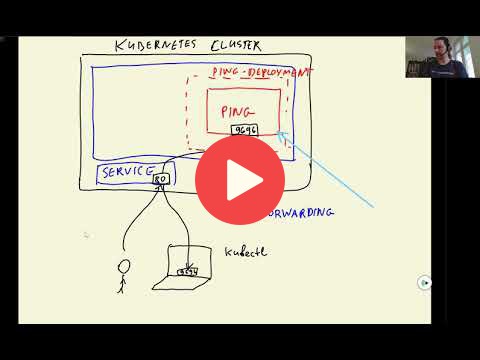 KUBERNETES CLUSTER
PING-DEPLOYMENT
PING
9696
SERVICE
80
FORWARDING
Kubectl